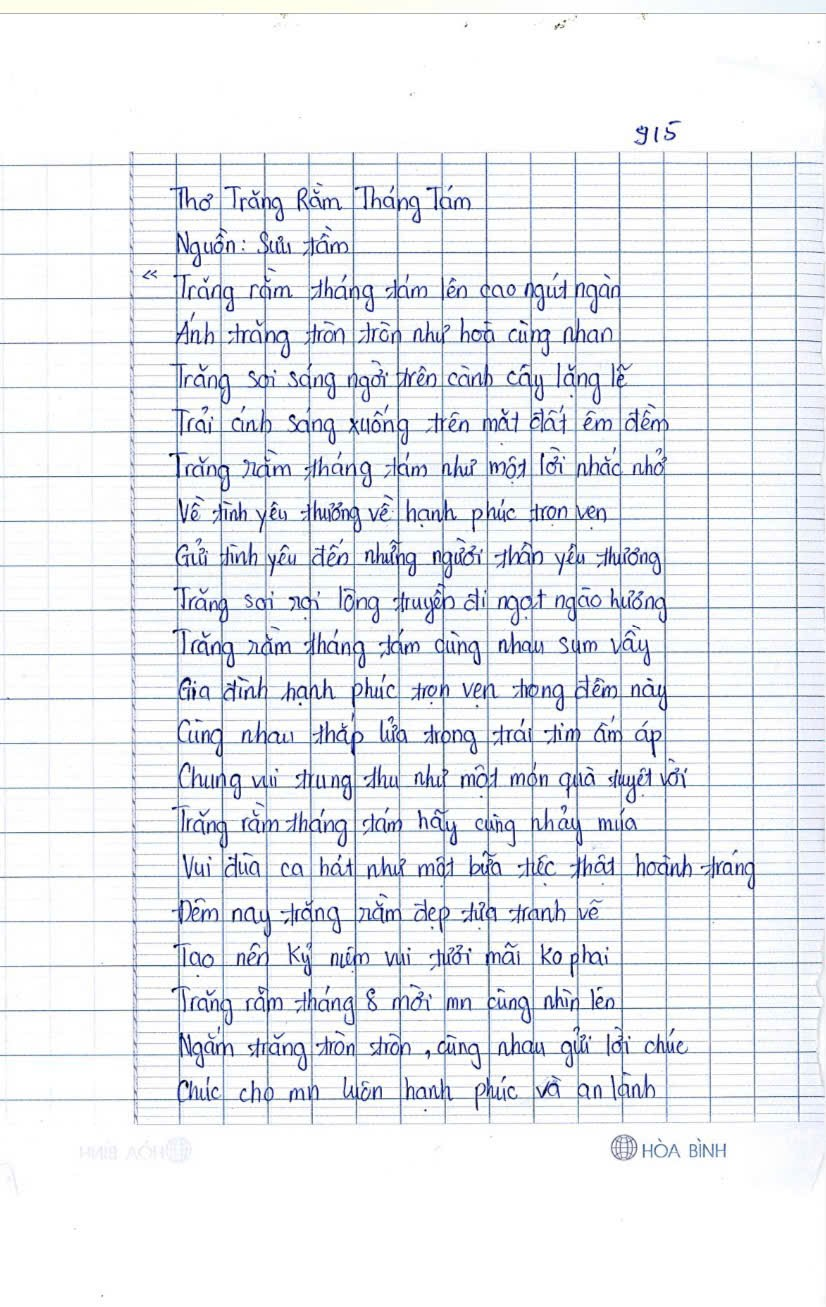 915
Thơ Trăng Rằm Tháng Tám
Nguồn: Sưu tầm
“ Trăng rằm tháng tám lên cao ngút ngàn
Ánh trăng tròn tròn như hoà cùng nhan
Trăng soi sáng ngời trên cành cây lặng lẽ
Trải ánh sáng xuống trên mặt đất êm đềm
Trăng rằm tháng tám như một lời nhắc nhở
Về tình yêu thương về hạnh phúc trọn vẹn
Gửi tình yêu đến những người thân yêu thương
Trăng soi rọi lòng truyền đi ngọt ngào hương
Trăng rằm tháng tám cùng nhau sum vầy
Gia đình hạnh phúc trọn vẹn trong đêm này
Cùng nhau thắp lửa trong trái tim ấm áp
Chung vui trung thu như một món quà tuyệt vời
Trăng rằm tháng tám hãy cùng nhảy múa
Vui đùa ca hát như một bữa tiệc thật hoành tráng
Đêm nay trăng rằm đẹp tựa tranh vẽ
Tạo nên kỷ niệm vui tươi mãi ko phai
Trăng rằm tháng 8 mời mn cùng nhìn lên
Ngắm trăng tròn tròn, cùng nhau gửi lời chúc
Chúc cho mn luôn hạnh phúc và an lành
HÒA BÌNH